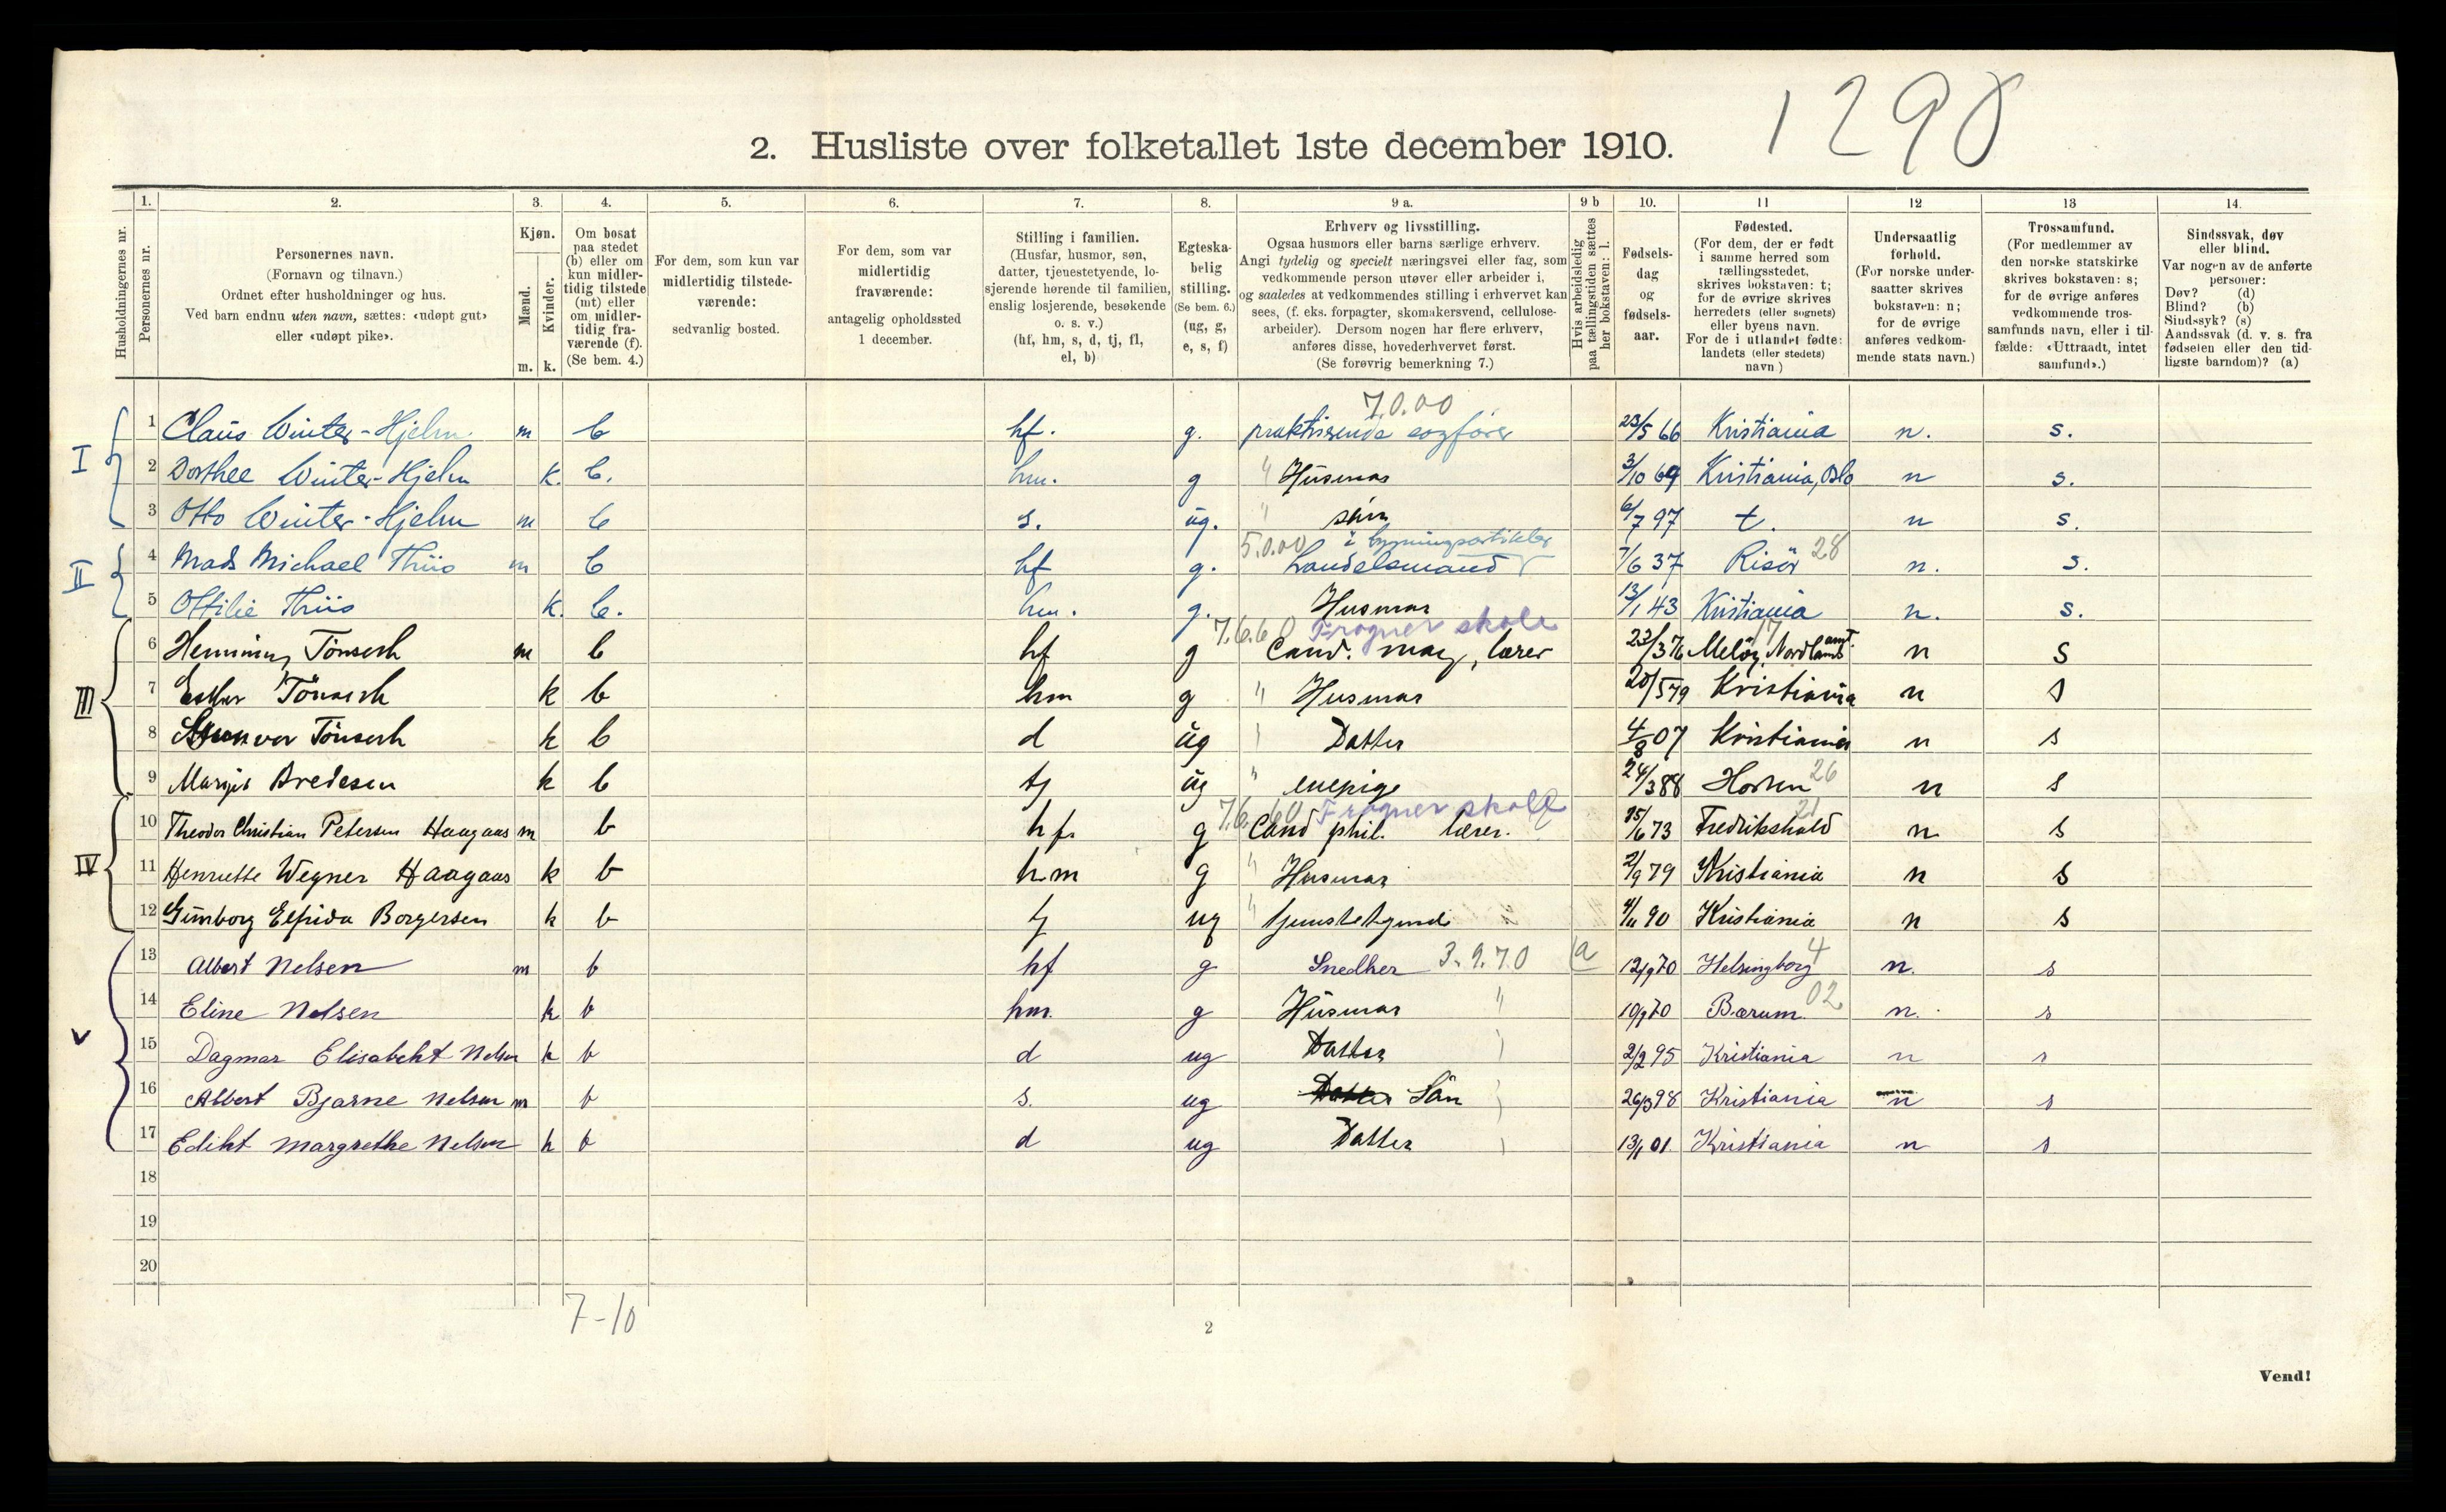 1298
2. Husliste over folketallet 1ste december 1910.
1. 2. 3. 4. 5. 6. 7. 8. 9 a. 9 b 10. 11 12 13 14.
Husholdningernes nr.
Personernes nr.
Personernes navn.
(Fornavn og tilnavn.)
Ordnet efter husholdninger og hus.
Ved barn endnu uten navn, sættes: «udøpt gut»
eller «udøpt pike».
Kjøn.
Mænd.
Kvinder.
m. k.
Om bosat
paa stedet
(b) eller om
kun midler-
tidig tilstede
(mt) eller
om midler-
tidig fra-
værende (f).
(Se bem. 4.)
For dem, som kun var
midlertidig tilstede-
værende:
sedvanlig bosted.
For dem, som var
midlertidig
fraværende:
antagelig opholdssted
1 december.
Stilling i familien.
(Husfar, husmor, søn,
datter, tjenestetyende, lo-
sjerende hørende til familien,
enslig losjerende, besøkende
o. s. v.)
(hf, hm, s, d, tj, fl,
el, b)
Egteska-
belig
stilling.
(Se bem. 6.)
(ug, g,
e, s, f)
Erhverv og livsstilling.
Ogsaa husmors eller barns særlige erhverv.
Angi tydelig og specielt næringsvei eller fag, som
vedkommende person utøver eller arbeider i,
og saaledes at vedkommendes stilling i erhvervet kan
sees, (f. eks. forpagter, skomakersvend, cellulose-
arbeider). Dersom nogen har flere erhverv,
anføres disse, hovederhvervet først.
(Se forøvrig bemerkning 7.)
Hvis arbeidsledig
paa tællingstiden sættes
her bokstaven: l.
Fødsels-
dag
og
fødsels-
aar.
Fødested.
(For dem, der er født
i samme herred som
tællingsstedet,
skrives bokstaven: t;
for de øvrige skrives
herredets (eller sognets)
eller byens navn.
For de i utlandet fødte:
landets (eller stedets)
navn.)
Undersaatlig
forhold.
(For norske under-
saatter skrives
bokstaven: n;
for de øvrige
anføres vedkom-
mende stats navn.)
Trossamfund.
(For medlemmer av
den norske statskirke
skrives bokstaven: s;
for de øvrige anføres
vedkommende tros-
samfunds navn, eller i til-
fælde: «Uttraadt, intet
samfund».)
Sindssvak, døv
eller blind.
Var nogen av de anførte
personer:
Døv? (d)
Blind? (b)
Sindssyk? (s)
Aandssvak (d. v. s. fra
fødselen eller den tid-
ligste barndom)? (a)
7.0.00
I 1 Claus Winter-Hjelm m b hf. g. praktiserende sagfører 23/5 66 Kristiania n. s.
2 Dorthee Winter-Hjelm k. b. hm. g " Husmor 3/10 69 Kristiania, Oslo n s.
3 Otto Winter-Hjelm m b s. ug. " søn 6/7 97 t. n s.
5.0.00 i bygningsartikler
II 4 Mads Michael Thiis m b hf g. handelsmand 7/6 37 Risör 28 n. s.
5 Ottilie Thiis k. b. hm. g. Husmor 13/1 43 Kristiania n. s.
7.6.60 Frogner skole
III 6 Henning Tönseth m b hf g Cand. mag, lærer 23/3 76 Melöy, Nordlands amt. 17 n s
7 Esther Tönseth k b hm g " Husmor 20/5 79 Kristiania n s
8 Tönseth k b d ug " Datter 4/8 07 Kristiania n s
9 Margit Bredesen k b tj ug " enepige 24/3 88 Horten 26 n s
7.6.60 Frogner skole
IV 10 Theodor Christian Petersen Haagaas m b hf. g Cand phil. lærer. 25/6 73 Fredrikshald 21 n s
11 Henriette Wegner Haagaas k b hm g " Husmor 2/9 79 Kristiania n s
12 Gunborg Elfrida Borgersen k b tj ug " tjenestetyende 4/11 90 Kristiania n s
V 13 Albert Nelsen m b hf g Snedker 3.9.70 a 12/9 70 Helsingborg 4 n. s
14 Eline Nelsen k b hm. g Husmor " 19/9 70 Bærum 02 n. s
15 Dagmar Elisabeht Nelsen k b d ug Datter " 2/2 95 Kristiania n s
16 Albert Bjarne Nelsen m b s. ug Datter Sön " 26/3 98 Kristiania n s
17 Ediht Margrethe Nelsen k b d ug Datter " 13/1 01. Kristiania n s
18
19
20
7-10
2
Vend!